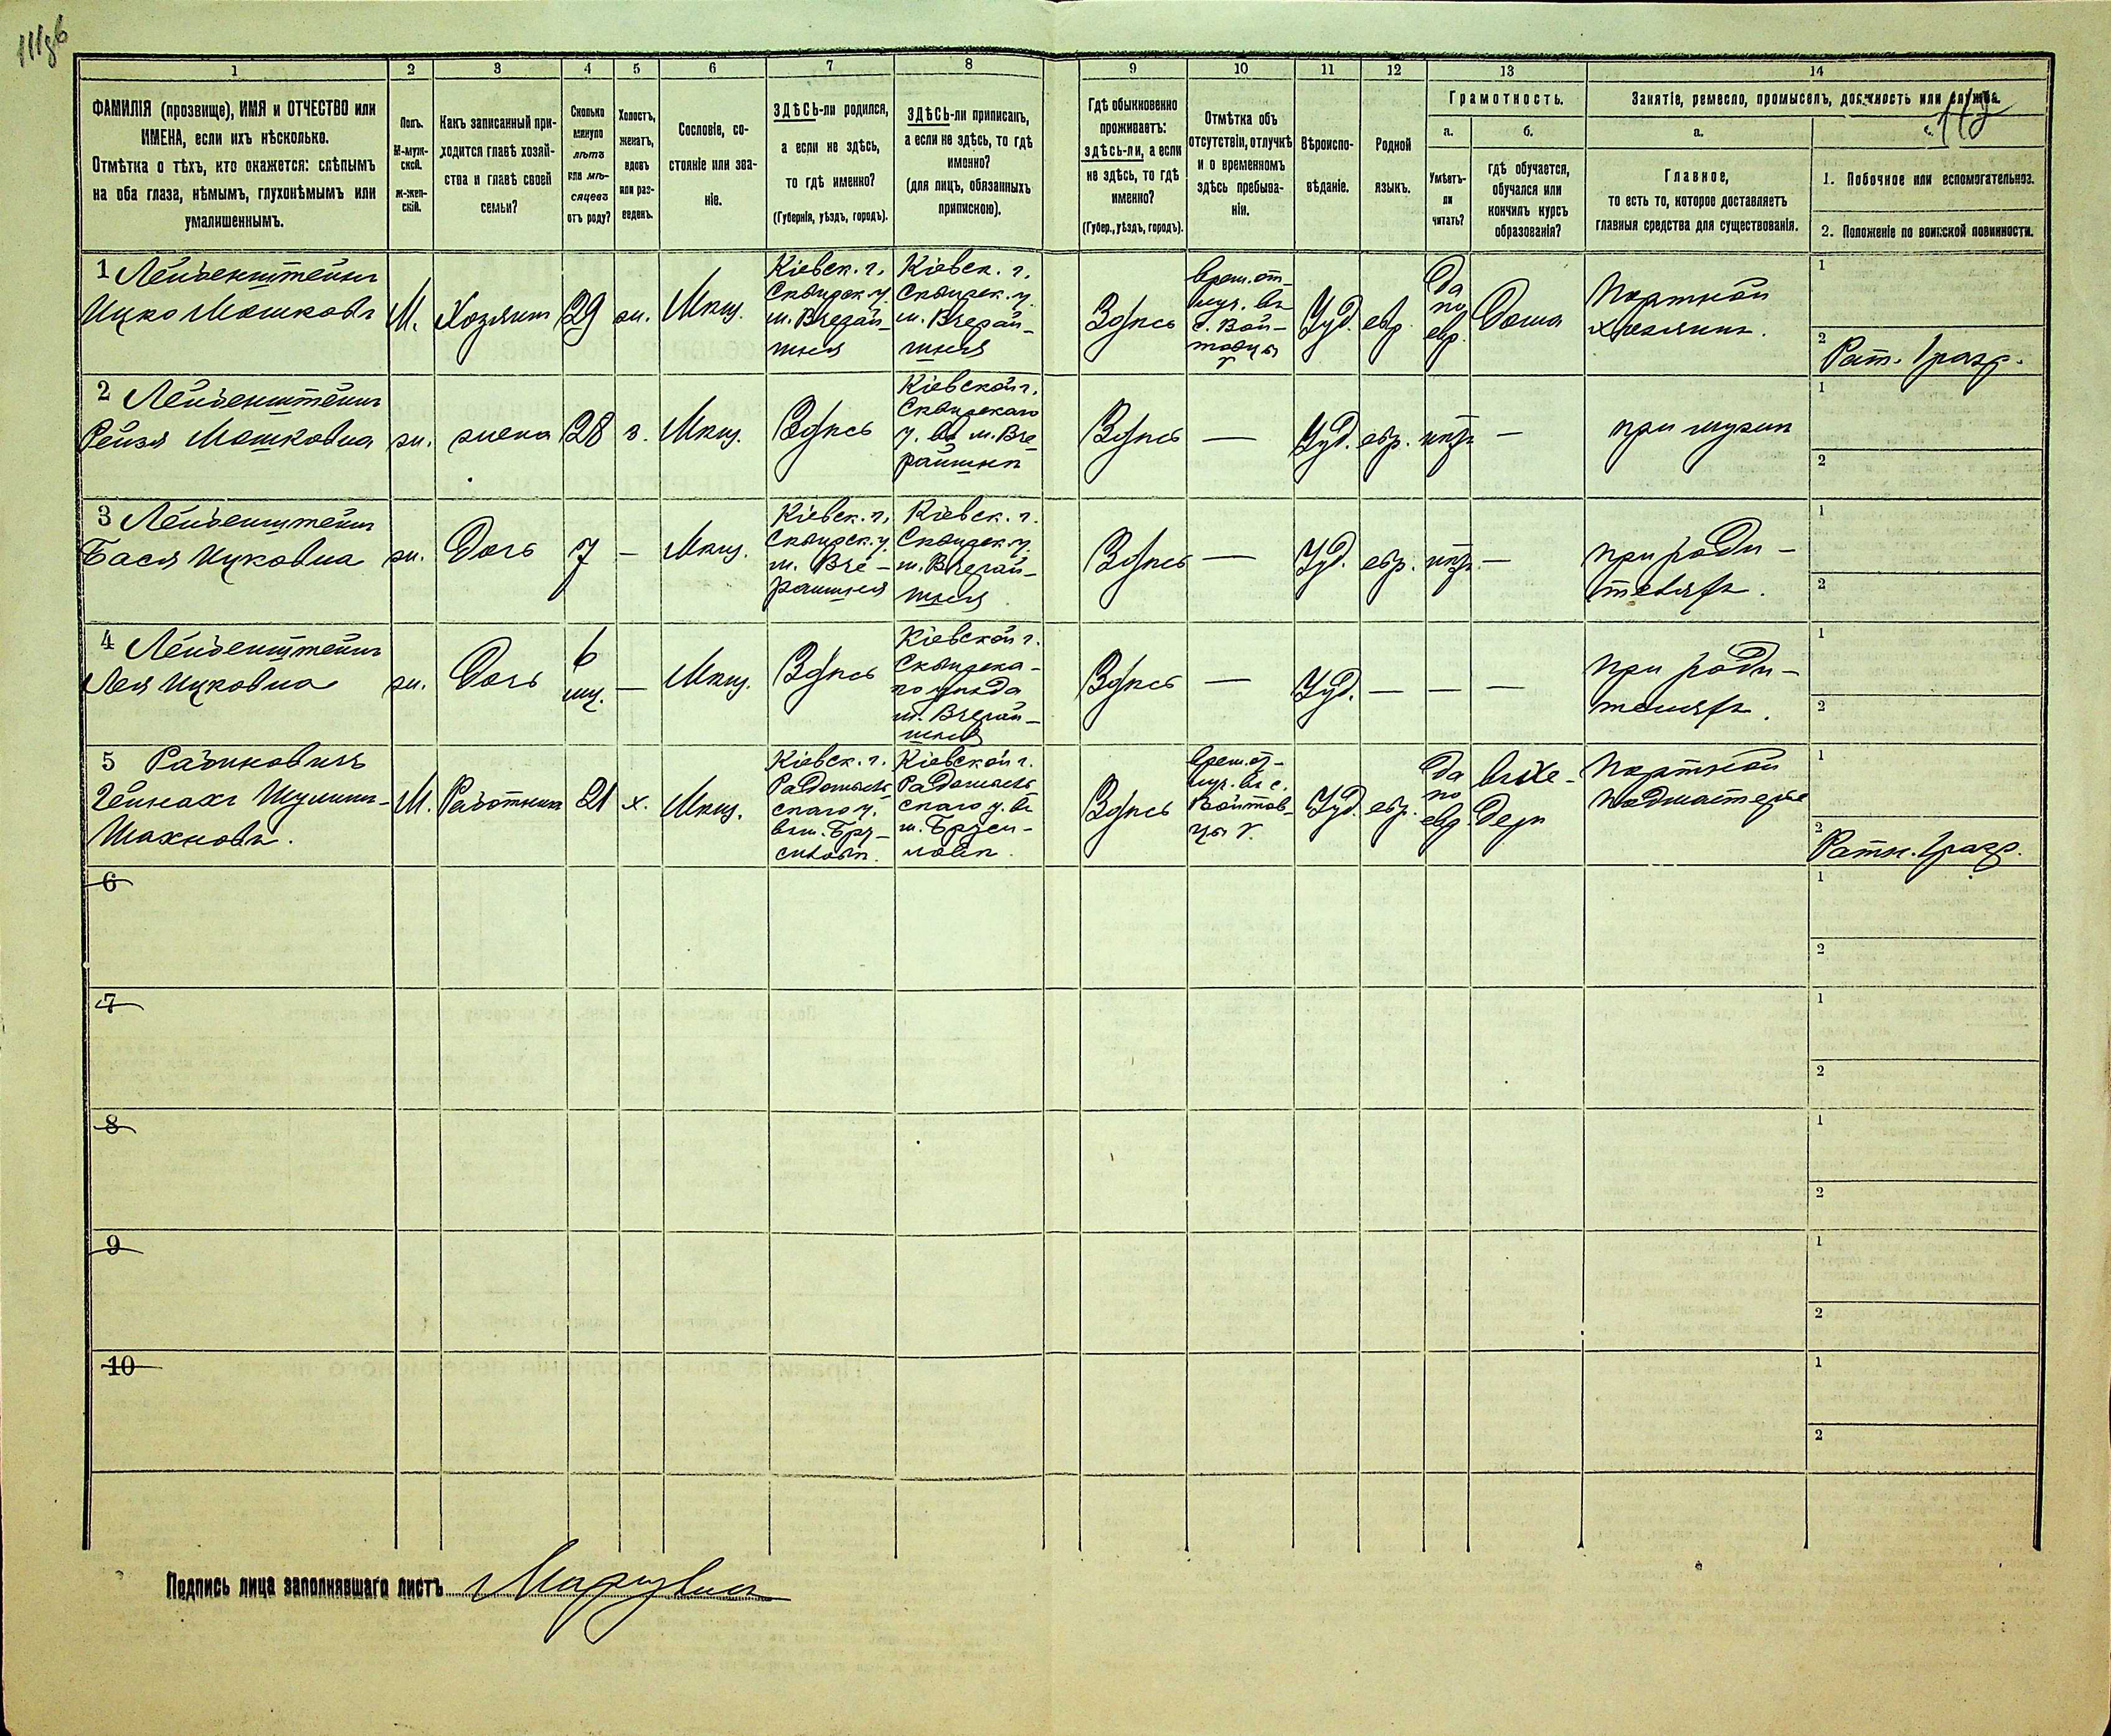 1 2 3 4 5 6 7 8 9 10 11 12 13 14
ФАМИЛІЯ (прозвище), ИМЯ и ОТЧЕСТВО или
ИМЕНА, если ихъ нѣсколько.
Отмѣтка о тѣхъ, кто окажется: слѣпымъ
на оба глаза, нѣмымъ, глухонѣмымъ или
умалишеннымъ.
Полъ.
М-муж-
ской.
ж-жен-
скій.
Какъ записанный при-
ходится главѣ хозяй-
ства и главѣ своей
семьи?
Сколько
минуло
лѣтъ
или мѣ-
сяцевъ
отъ роду?
Холостъ,
женатъ,
вдовъ
или раз-
веденъ.
Сословіе, со-
стояніе или зва-
ніе.
ЗДѢСЬ-ли родился,
а если не здѣсь,
то гдѣ именно?
(Губернія, уѣздъ, городъ).
ЗДѢСЬ-ли приписанъ,
а если не здѣсь, то гдѣ
именно?
(для лицъ, обязанныхъ
припискою).
Гдѣ обыкновенно
проживаетъ:
здѣсь-ли, а если
не здѣсь, то гдѣ
именно?
(Губер., уѣздъ, городъ).
Отмѣтка объ
отсутствіи, отлучкѣ
и о временномъ
здѣсь пребыва-
ніи.
Вѣроиспо-
вѣданіе.
Родной
языкъ.
Грамотность.
а.
Умѣетъ-
ли
читать?
б.
гдѣ обучается,
обучался или
кончилъ курсъ
образованія?
Занятіе, ремесло, промыселъ, должность или служба.
а.
Главное,
то есть то, которое доставляетъ
главныя средства для существованія.
1. Побочное или вспомогательное.
2. Положеніе по воинской повинности.
1 Лейбенштейнъ
Ицко Мошковъ
М.
Хозяинъ
29
ж.
Мѣщ.
Кіевск. г.
Сквирск. у.
м. Вчерай-
шня
Кіевск. г.
Сквирск. у.
м. Вчерай-
шня
Здѣсь
врем. от-
луч. въ
с. Вой-
товцы
Іуд.
евр.
Да
по
евр.
Дома
Портной
хозяинъ.
1
2
Рат. 1 разр.
2 Лейбенштейнъ
Рейзя Мошковна
ж.
жена
28
з.
Мѣщ.
Здѣсь
Кіевской г.
Сквирскаго
у. въ м. Вче-
райшнѣ
Здѣсь
—
Іуд.
евр.
нѣт
—
при мужѣ
1
2
3 Лейбенштейнъ
Бася Ицковна
ж.
Дочь
7
—
Мѣщ.
Кіевск. г.
Сквирск. у.
м. Вче-
райшня
Кіевск. г.
Сквирск. у.
м. Вчерай-
шня
Здѣсь
—
Іуд.
евр.
нѣт
—
при роди-
теляхъ.
1
2
4 Лейбенштейнъ
Лея Ицковна
ж.
Дочь
6
мц.
—
Мѣщ.
Здѣсь
Кіевской г.
Сквирска-
го уѣзда
м. Вчерай-
шня
Здѣсь
—
Іуд.
—
—
—
при роди-
теляхъ.
1
2
5 Рабиновичъ
Гейнахъ Шулимъ-
Шахновъ.
М.
Работникъ
21
х.
Мѣщ.
Кіевск. г.
Радомысль-
скаго у.
въ м. Бру-
силовѣ.
Кіевской г.
Радомысль-
скаго у. въ
м. Бруси-
ловѣ.
Здѣсь
врем. от-
луч. въ с.
Войтов-
цы
Іуд.
евр.
да
по
евр.
въ хе-
дерѣ
Портной
подмастерье
1
2
Ратн. 1 разр.
6
1
2
7
1
2
8
1
2
9
1
2
10
1
2
Подпись лица заполнявшаго листъ